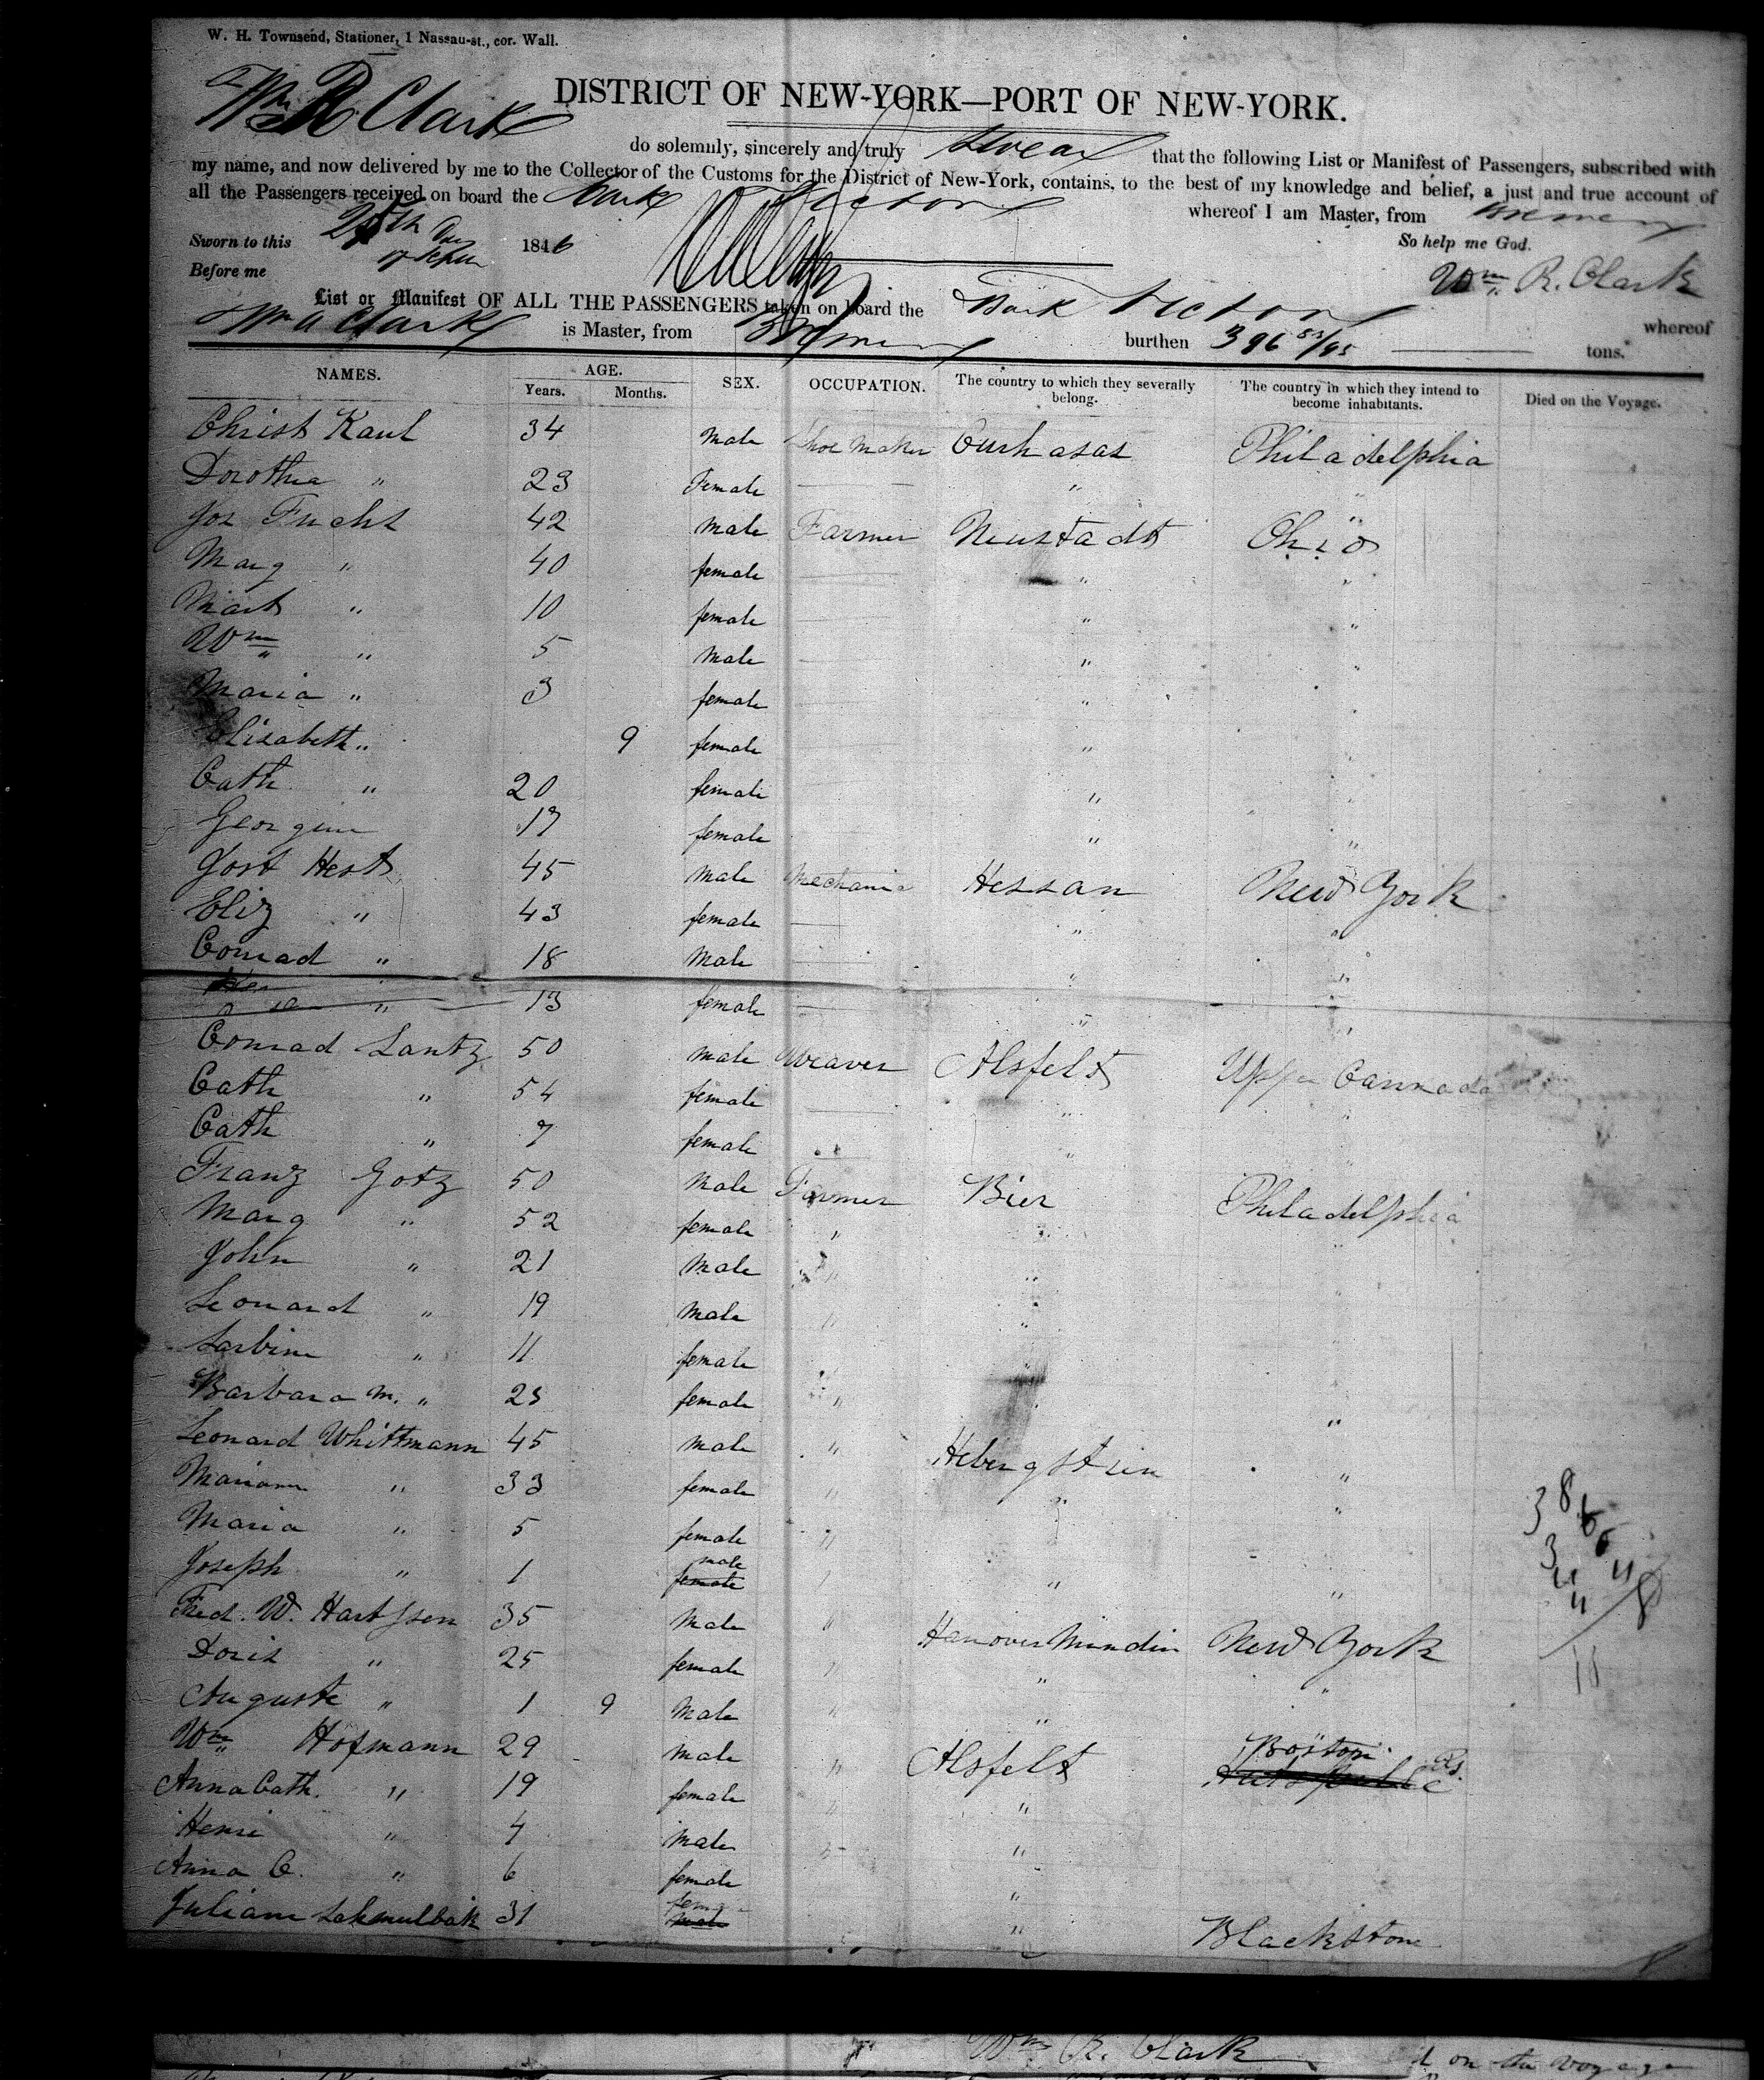 W. H. Townsend, Stationer, 1 Nassau-st., cor. Wall.
DISTRICT OF NEW-YORK—PORT OF NEW-YORK.
I Wm R Clark do solemnly, sincerely and truly Swear that the following List or Manifest of Passengers, subscribed with
my name, and now delivered by me to the Collector of the Customs for the District of New-York, contains, to the best of my knowledge and belief, a just and true account of
all the Passengers received on board the Bark Victor whereof I am Master, from Bremen
Sworn to this 25th Day of Septr 1846 So help me God.
Before me Wm. R. Clark
List or Manifest OF ALL THE PASSENGERS taken on board the Bark Victor whereof
Wm R Clark is Master, from Bremen burthen 396 tons.
NAMES. AGE. SEX. OCCUPATION. The country to which they severally belong. The country in which they intend to become inhabitants. Died on the Voyage.
Years. Months.
Christ Kaul 34 male Shoe maker Philadelphia
Dorothea " 23 Female "
Jos Fuchs 42 male Farmer Neustadt Ohio
Marg " 40 female " "
Mart " 10 female " "
Wm " 5 male " "
Maria " 3 female " "
Elisabeth " 9 female "
Cath " 20 female "
Georgine 17 female " "
Jost Hest 45 male Mechanic Hessan New York
Eliz " 43 female " "
Conrad " 18 male " "
" 13 female " "
Conrad Lantz 50 male Weaver Alsfelt Upper Cannada
Cath " 54 female "
Cath " 7 female "
Franz Gotz 50 male Farmer Bier Philadelphia
Marg " 52 female " "
John " 21 male " "
Leonard " 19 male " "
Sarbine " 11 female "
Barbara M. " 23 female " "
Leonard Whittmann 45 male " Hebergstien "
Mariann " 33 female " " "
Maria " 5 female "
Joseph " 1 male female " "
Fred. W. Hartjsen 35 male " Hanover Mindin New York
Doris " 25 female " " "
Auguste " 1 9 male " "
Wm Hofmann 29 male " Alsfelt Boston
Anna Cath. " 19 female " "
Henri " 4 male "
Anna C. " 6 female "
Juliane 31 female male " Blackstone
Wm R. Clark
on the voyage